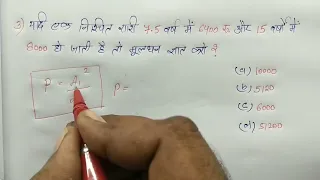 3) यदि एक निश्चित राशी 7.5 वर्ष में 6400 रू और 15 वर्षो में
8000 हो जाती है तो मूलधन ज्ञात करो ?
(a) 10000
(b) 5120
(c) 6000
(d) 51200
P = A₁² P =